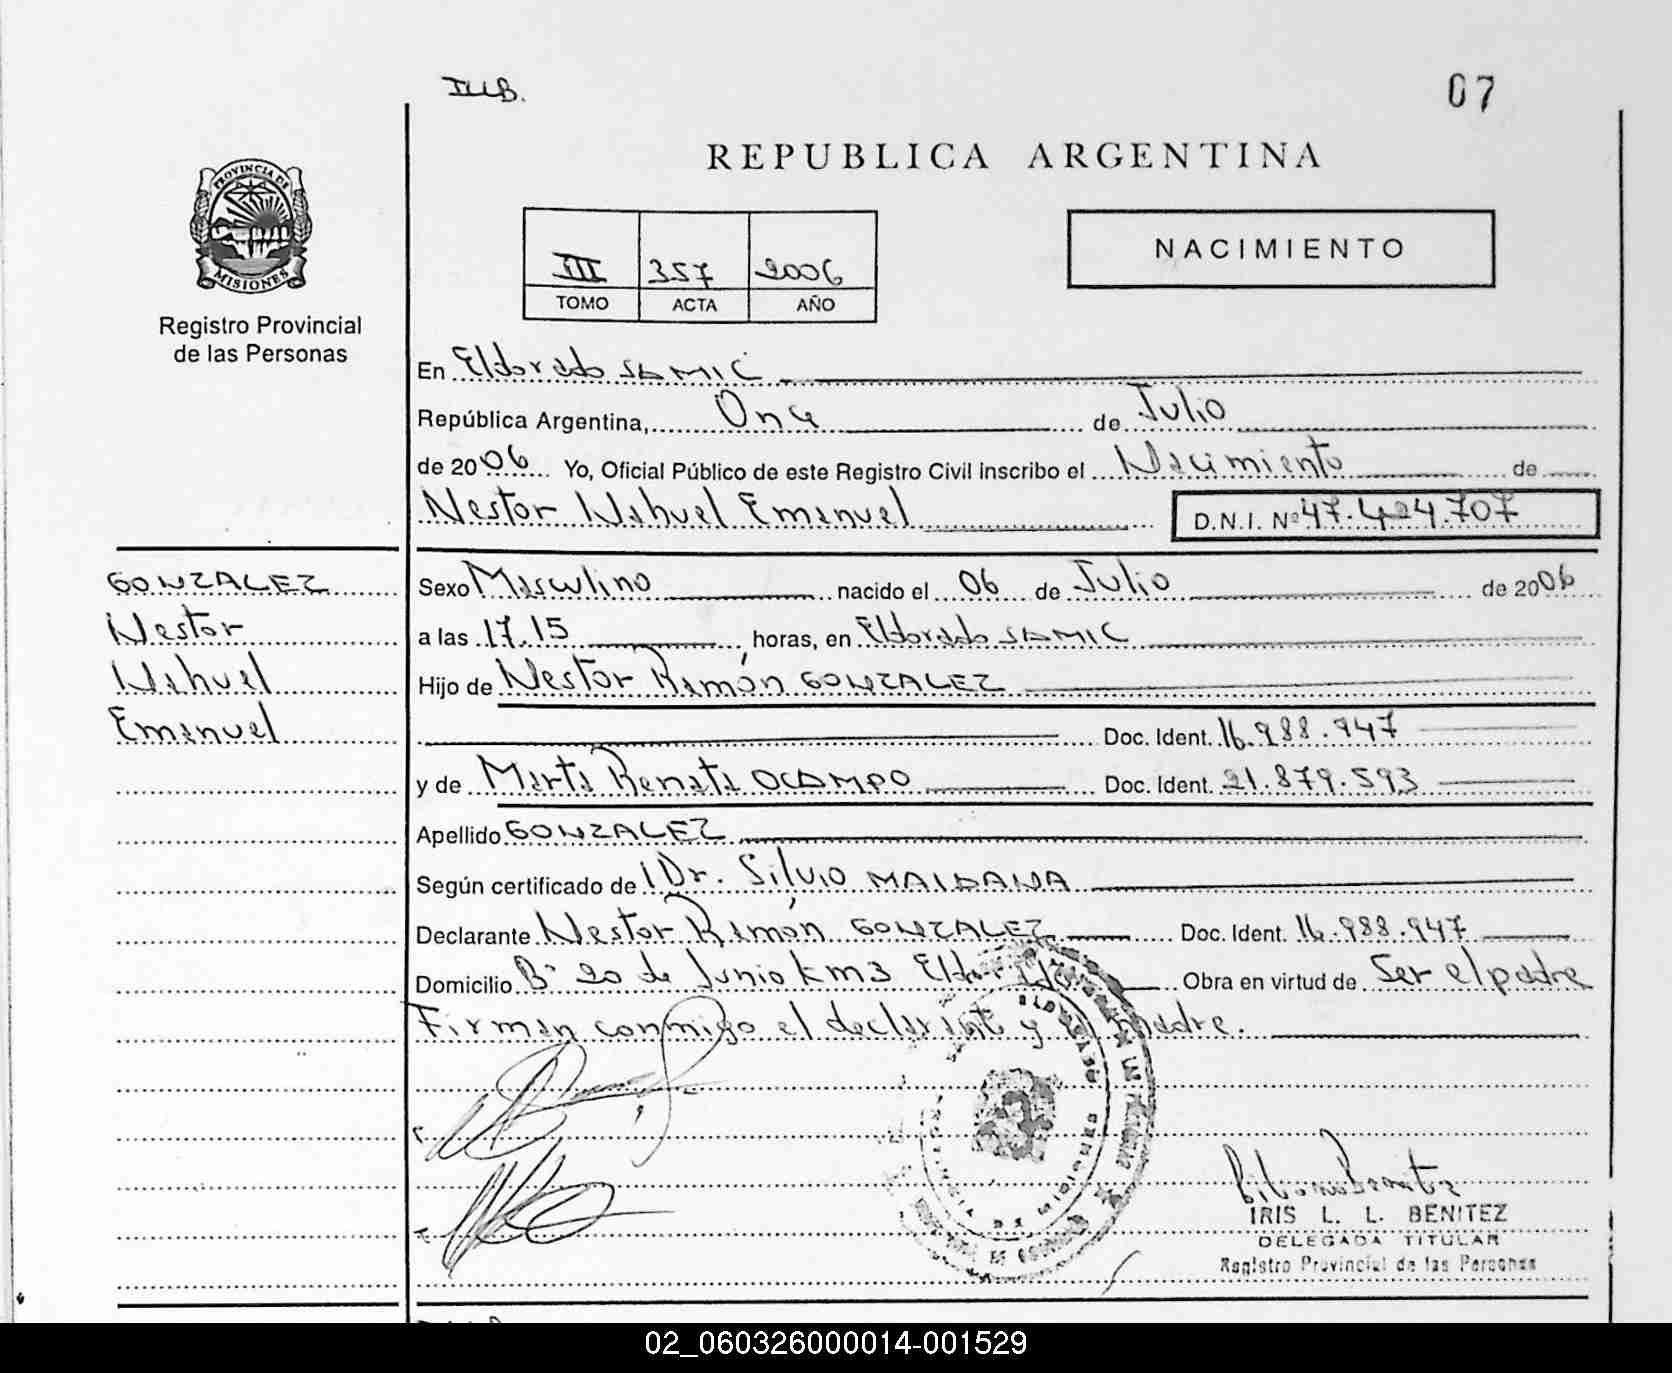 IIIB.
07
REPUBLICA ARGENTINA
PROVINCIA DE
MISIONES
Registro Provincial
de las Personas
III 357 2006
TOMO ACTA AÑO
NACIMIENTO
En Eldorado SAMIC
República Argentina, Once de Julio
de 2006 Yo, Oficial Público de este Registro Civil inscribo el Nacimiento de
Nestor Nahuel Emanuel D.N.I. Nº 47.424.707
GONZALEZ
Nestor
Nahuel
Emanuel
Sexo Masculino nacido el 06 de Julio de 2006
a las 17.15 horas, en Eldorado SAMIC
Hijo de Nestor Ramón GONZALEZ
Doc. Ident. 16.988.947
y de Marta Renata OCAMPO Doc. Ident. 21.879.593
Apellido GONZALEZ
Según certificado de Dr. Silvio MAIDANA
Declarante Nestor Ramón GONZALEZ Doc. Ident. 16.988.947
Domicilio Bº 20 de Junio km3 Eldorado Obra en virtud de Ser el padre
Firman conmigo el declarante y la madre.
IRIS L. L. BENITEZ
DELEGADA TITULAR
Registro Provincial de las Personas
02_060326000014-001529